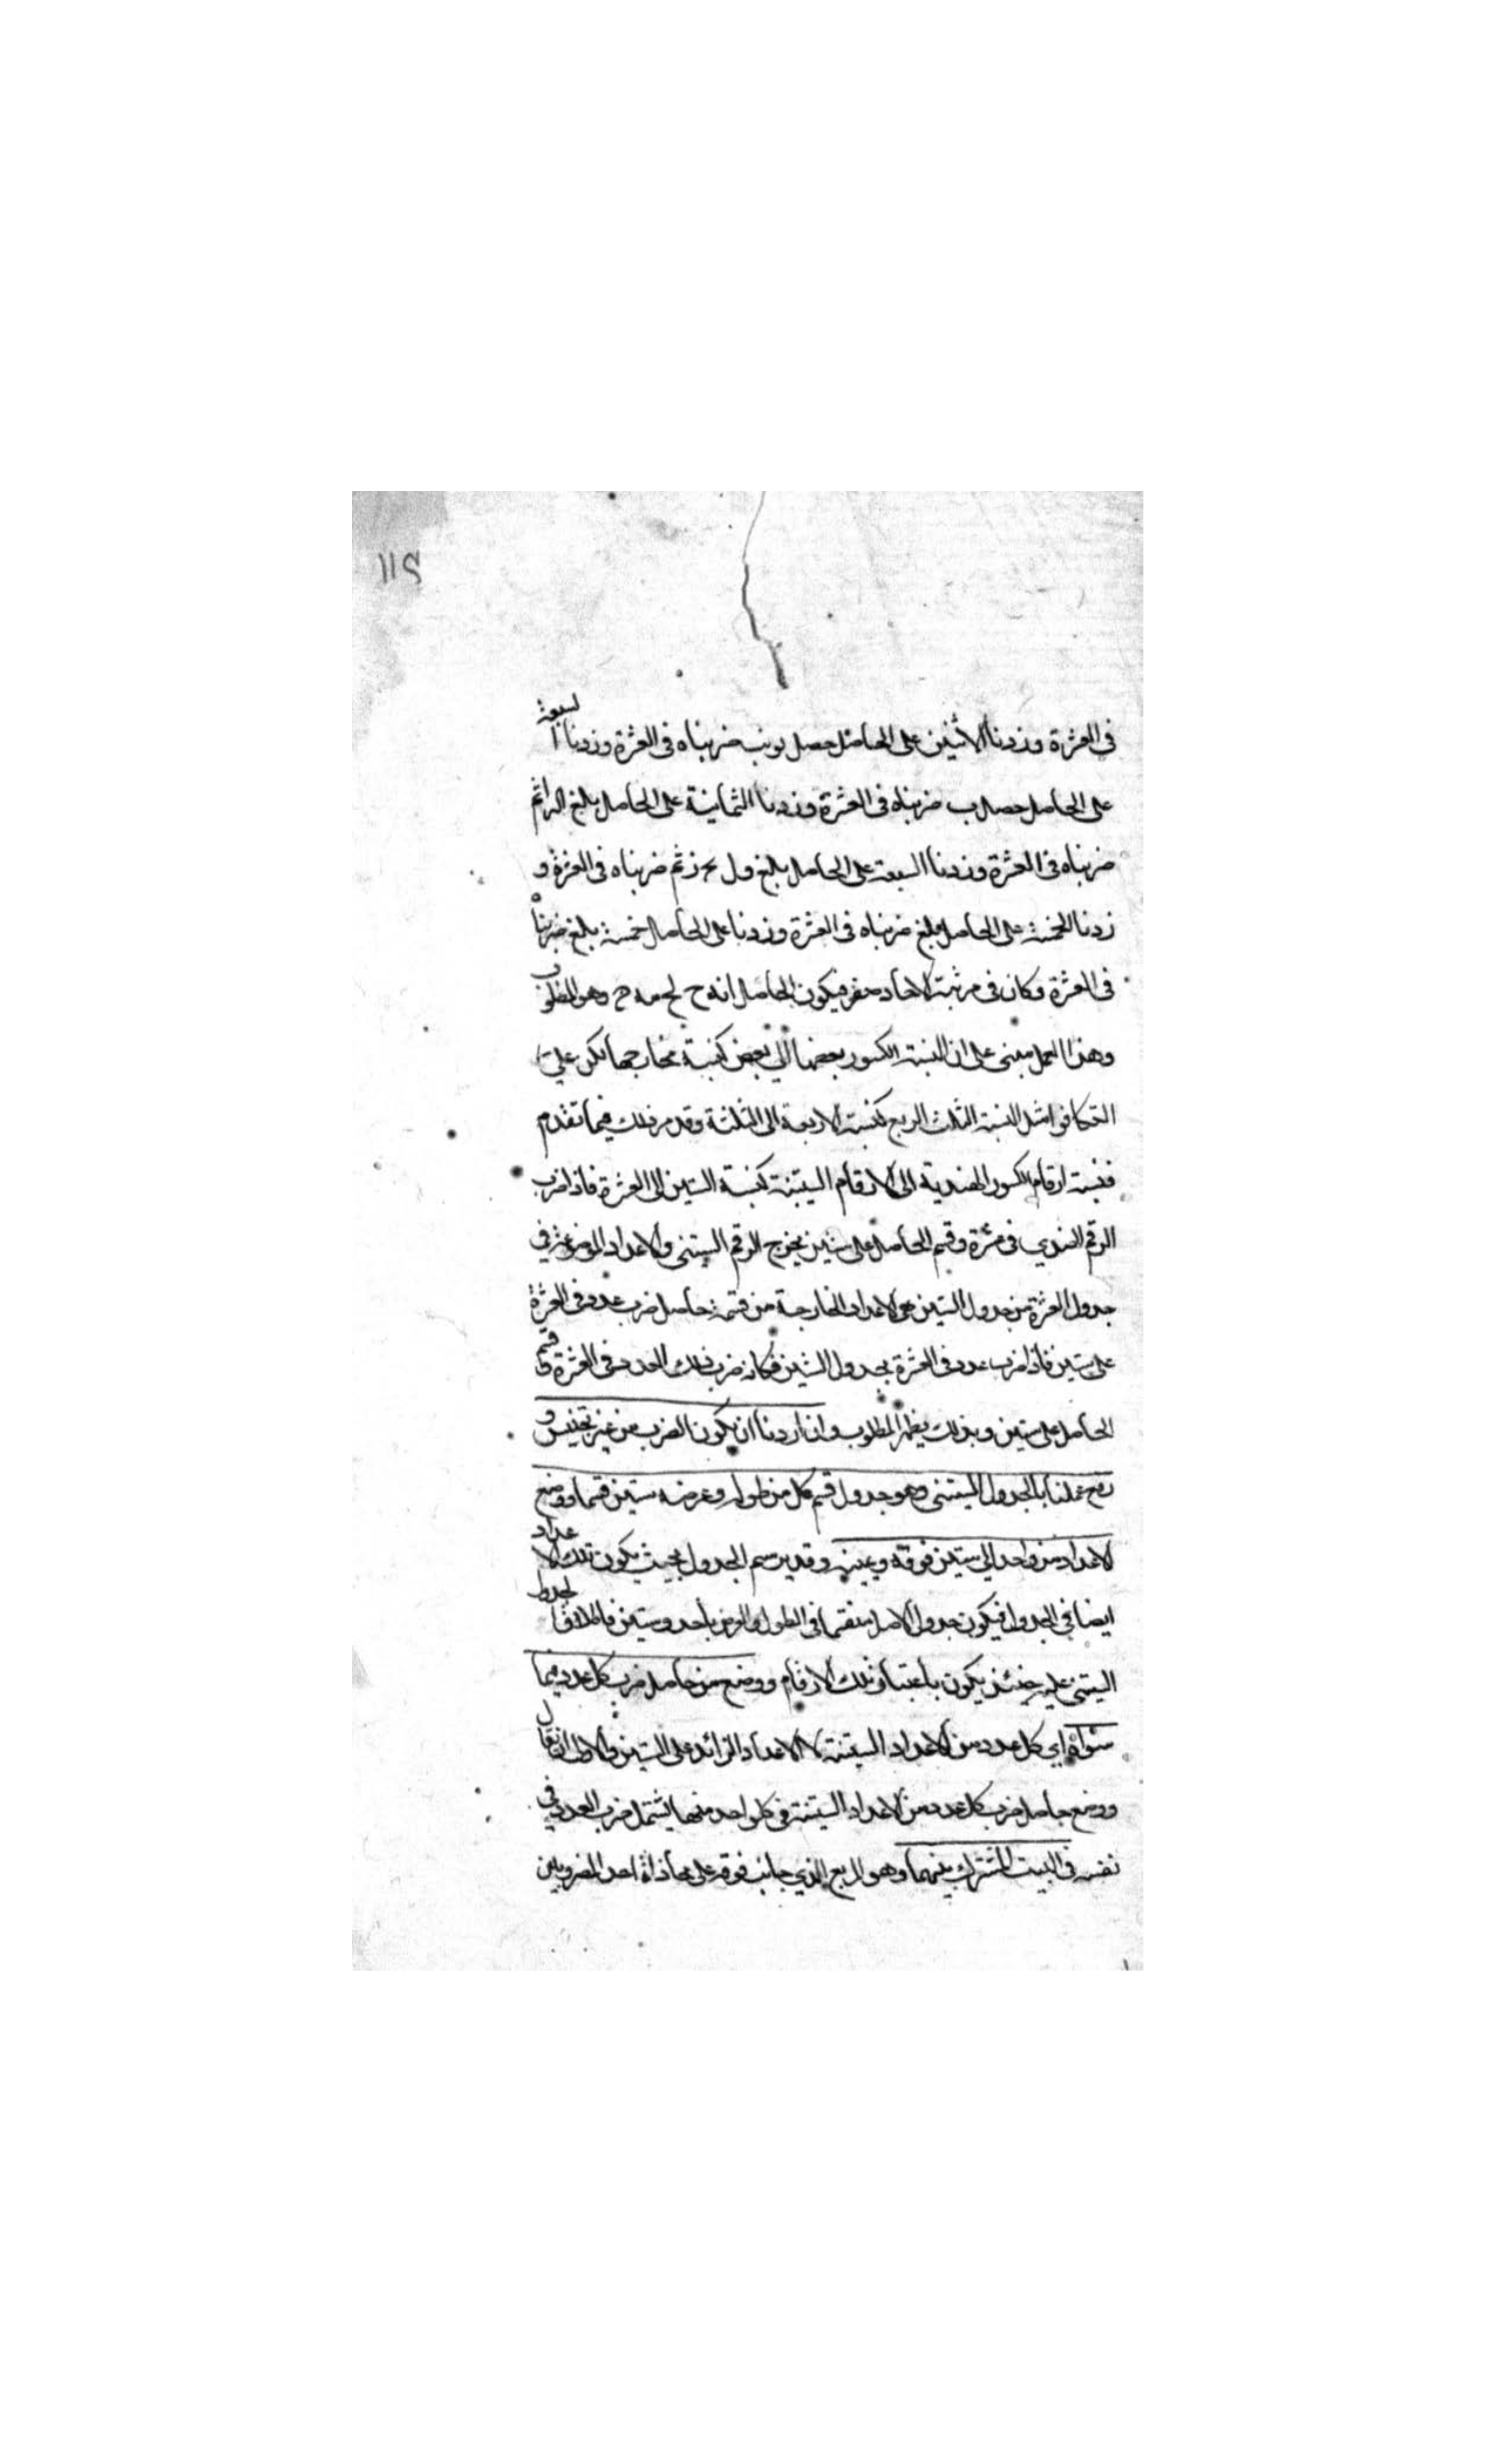 ١١٩
في العشرة وزدنا الاثنين على الحاصل حصل ضربناه في العشرة وزدنا السبعة
على الحاصل حصل ب ضربناه في العشرة وزدنا الثمانية على الحاصل بلغ ثم
ضربناه في العشرة وزدنا السبعة على الحاصل بلغ ثم ضربناه في العشرة و
زدنا الخمسة على الحاصل بلغ ضربناه في العشرة وزدنا على الحاصل خمسة بلغ ضربنا
في العشرة وكان في مرتبة الاحاد صفر فيكون الحاصل وهو المطلوب
وهذا العمل مبنى على ان النسبة الكسور بعضها الى بعض كنسبة مخارجها لكن على
التكافوا مثل النسبة الثلث الربع كنسبة الاربعة الى الثلثة وقد مر ذلك فيما تقدم
فنسبة ارقام الكسور الهندية الى الارقام الستينية كنسبة الستين الى العشرة فاذا ضرب
الرقم الهندي في عشرة وقسم الحاصل على ستين يخرج الرقم الستيني والاعداد الموضوعة في
جدول العشرة من جدول الستين هي الاعداد الخارجة من قسمة حاصل ضرب عدد في العشرة
على ستين فاذا ضرب عدد في العشرة بجدول الستين فكانه ضرب ذلك العدد في العشرة وقسم
الحاصل على ستين وبذلك يظهر المطلوب وان اردنا ان يكون الضرب من غير تجنيس و
رفع عملنا بالجدول الستيني وهو جدول قسم كل من طوله وعرضه ستين قسما ووضع
الاعداد من واحد الى ستين فوقه ويمينه وقد يرسم الجدول بحيث يكون تلك الاعداد
ايضا في الجدول فيكون جدول الاصل منقسما في الطول والعرض باحد وستين فاطلاق الجدول
الستيني عليه حينئذ يكون باعتبار تلك الارقام ووضع من حاصل ضرب كل عدد فيما
سواه اي كل عدد من الاعداد الستينية لا الاعداد الزائد على الستين والاولى ان يقال
ووضع حاصل ضرب كل عدد من الاعداد الستينية في كل واحد منها يشتمل ضرب العدد في
نفسه في البيت المشترك بينهما وهو المربع الذي جانب فوقه على محاذاة احد المضروبين